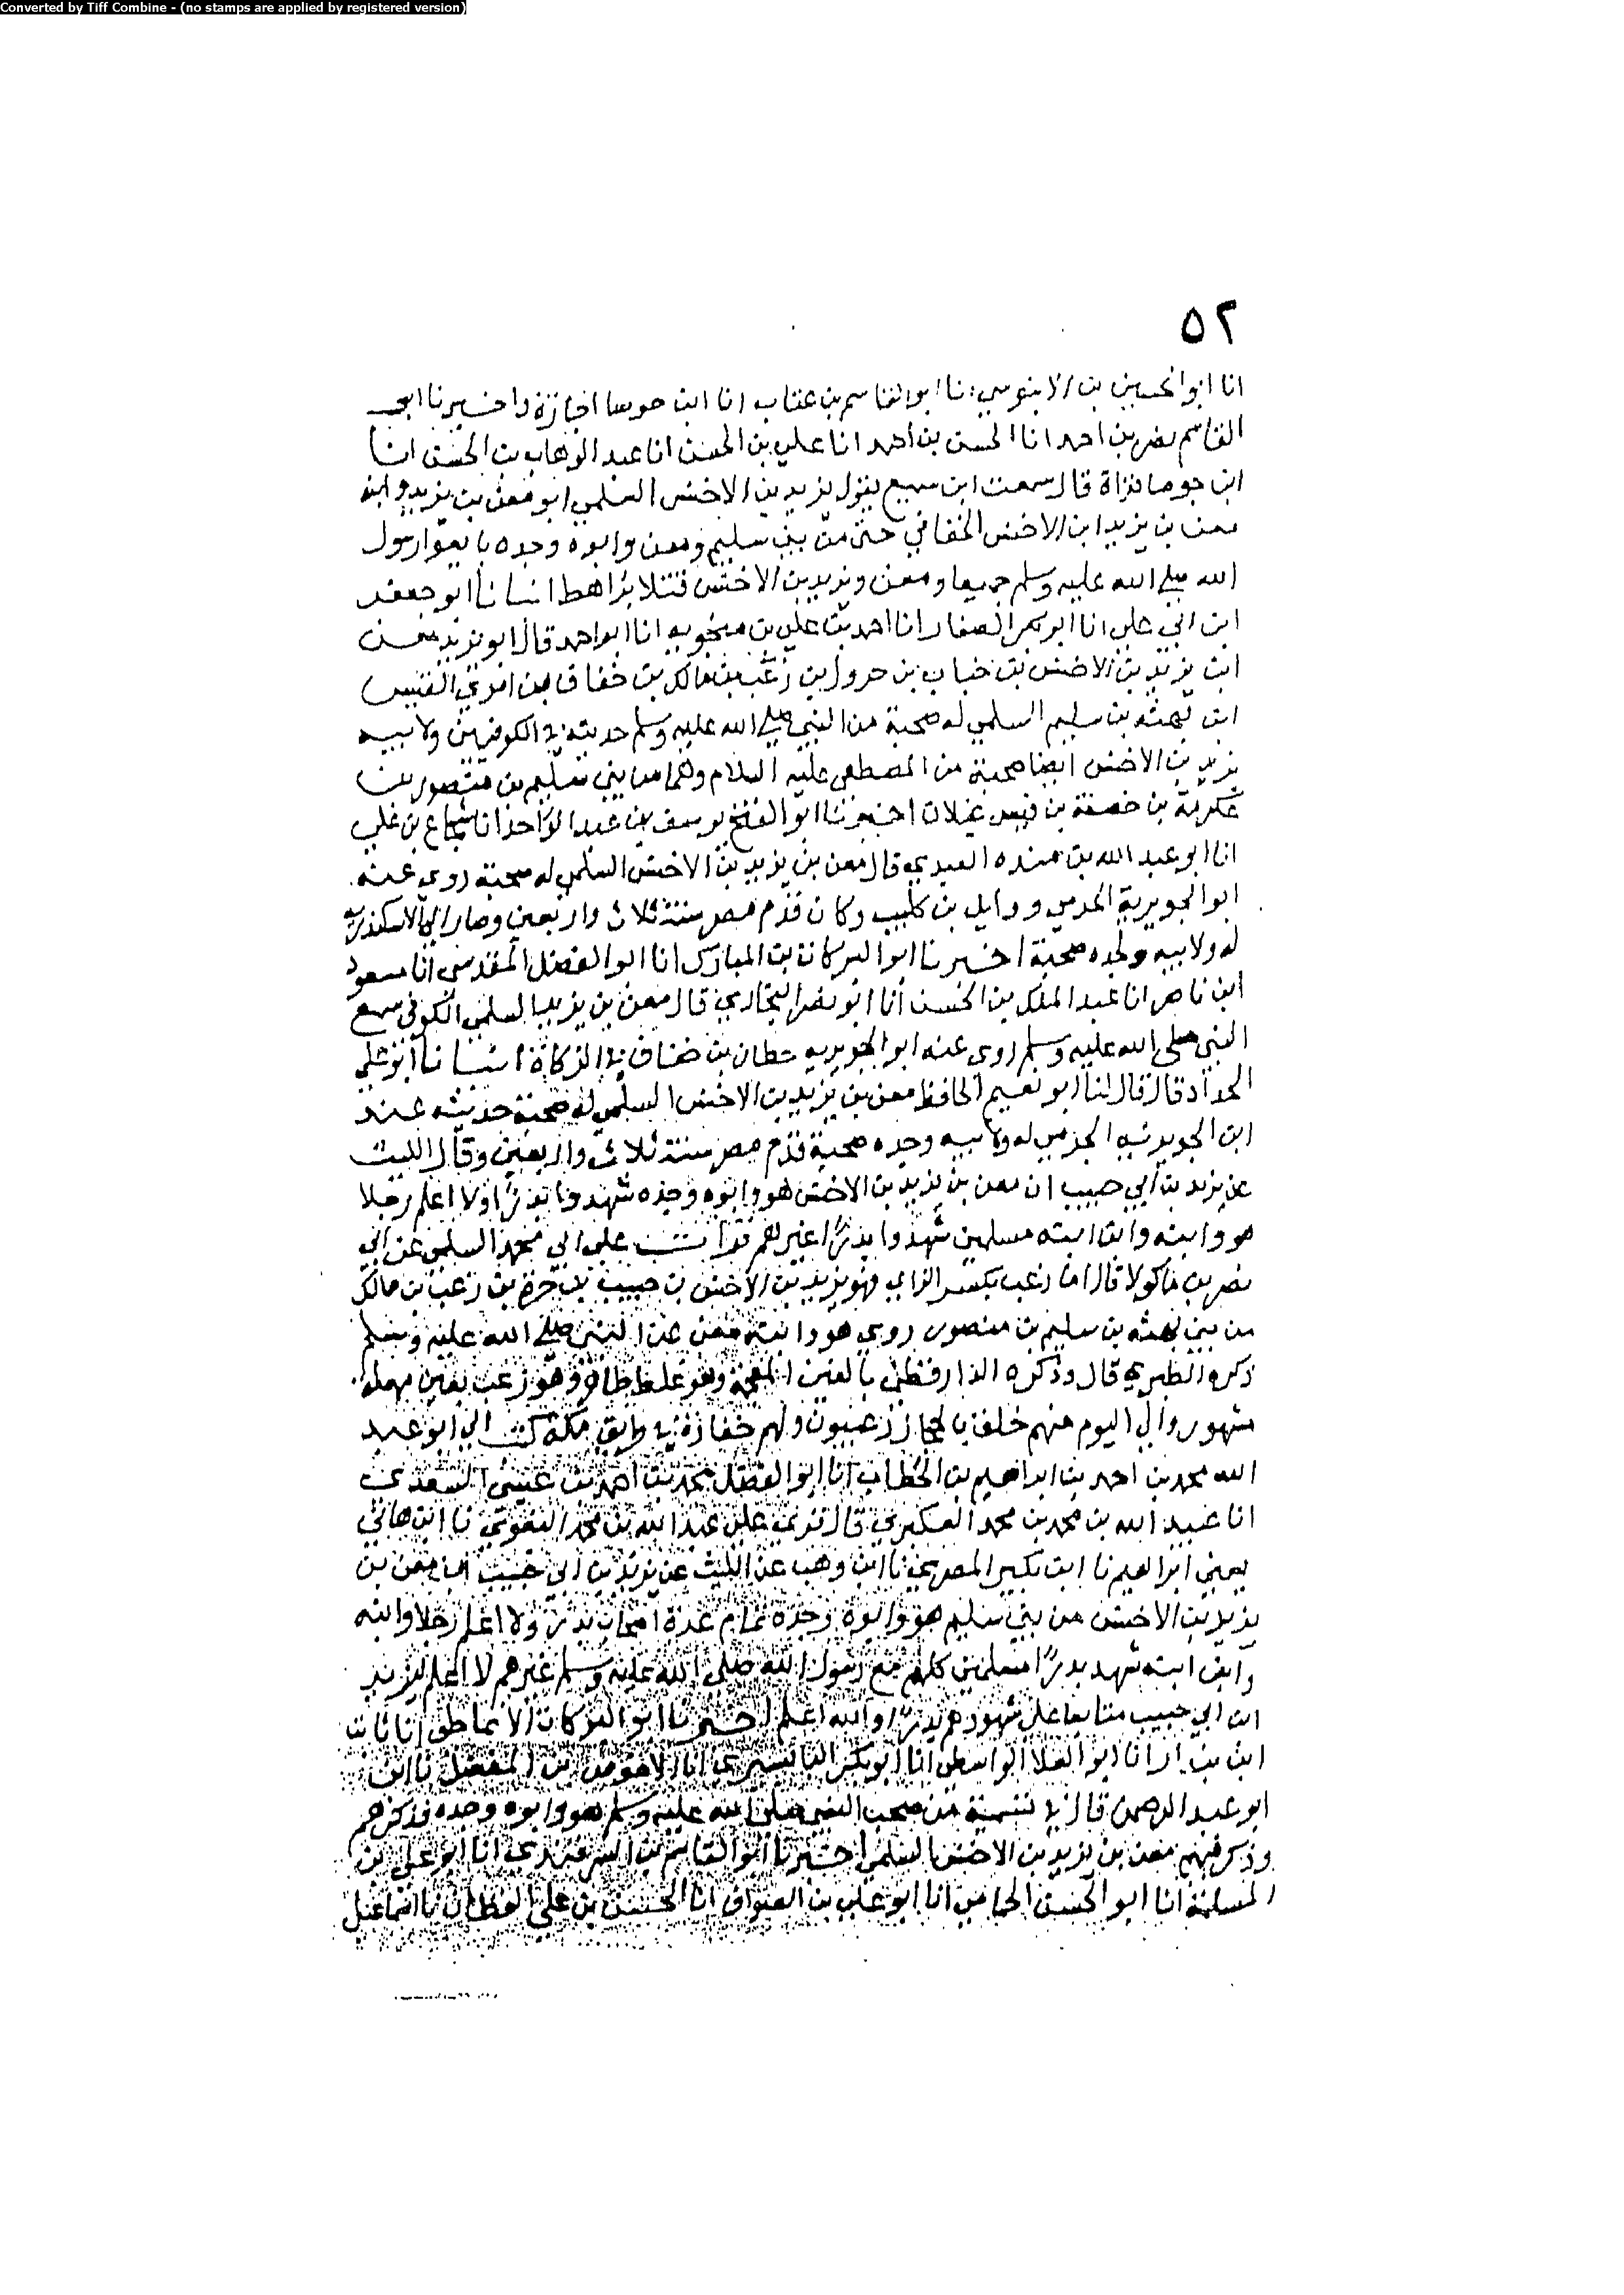 Converted by Tiff Combine - (no stamps are applied by registered version)
٥٢
انا ابو الحسين بن الابنوسي انا ابو القاسم بن عتاب انا ابن جوصا اجازة واخبرنا ابو
القاسم نصر بن احمد انا الحسن بن احمد انا علي بن الحسن انا عبد الوهاب بن الحسن انا
ابن جوصا قراة قال سمعت ابن سميع يقول يزيد بن الاخنس السلمي ابو معن بن يزيد وابنه
معن بن يزيد ابن الاخنس الخفافي حي من بني سليم ومعن وابوه وجده بايعوا رسول
الله صلى الله عليه وسلم جميعا ومعن ويزيد بن الاخنس قتلا براهط انبانا ابو جعفر
ابن ابي علي انا ابو بكر الصفار انا احمد بن علي بن منجويه انا ابو احمد قال ابو يزيد معن
ابن يزيد بن الاخنس بن خباب بن جرول بن زغب بن مالك بن خفاف بن امرئ القيس
ابن بهثة بن سليم السلمي له صحبة من النبي صلى الله عليه وسلم حديثه في الكوفيين ولابيه
يزيد بن الاخنس ايضا صحبة من المصطفى عليه السلام وهما من بني سليم بن منصور بن
عكرمة بن خصفة بن قيس عيلان اخبرنا ابو الفتح يوسف بن عبد الواحد انا شجاع بن علي
انا ابو عبد الله بن منده العبدي قال معن بن يزيد بن الاخنس السلمي له صحبة روى عنه
ابو الجويرية الجرمي ووايل بن كليب وكان قدم مصر سنة ثلاث واربعين وصار الى الاسكندرية
له ولابيه ولجده صحبة اخبرنا ابو البركات بن المبارك انا ابو الفضل المقدسي انا مسعود
ابن ناصر انا عبد الملك بن الحسن انا ابو نصر البخاري قال معن بن يزيد السلمي الكوفي سمع
النبي صلى الله عليه وسلم روى عنه ابو الجويريه حطان بن خفاف في الزكاة انبانا ابو علي
الحداد قال قال لنا ابو نعيم الحافظ معن بن يزيد بن الاخنس السلمي له صحبة حديثه عند
ابن الجويريه الجرمي له ولابيه وجده صحبة قدم مصر سنة ثلاث واربعين وقال الليث
عن يزيد بن ابي حبيب ان معن بن يزيد بن الاخنس هو وابوه وجده شهدوا بدرا ولا اعلم رجلا
هو وابنه وابن ابنه مسلمين شهدوا بدرا غيرهم قرأت على ابي محمد السلمي عن ابي
نصر بن ماكولا قال اما زغب بكسر الزاي فهو يزيد بن الاخنس بن حبيب بن جره بن زغب بن مالك
من بني بهثه بن سليم بن منصور روى هو وابنه معن عن النبي صلى الله عليه وسلم
ذكره الطبري قال وذكره الدارقطني بالغين المعجمة وهو غلط ظاهر وهو زعب بعين مهملة
مشهور والى اليوم منهم خلق بالحجاز زعبيون ولهم خفارة في طريق مكة كتب الي ابو عبد
الله محمد بن احمد بن ابراهيم بن الحطاب انا ابو الفضل محمد بن احمد بن عيسى السعدي
انا عبيد الله بن محمد بن محمد العكبري قال قرئ على عبد الله بن محمد البغوي نا ابن هاني
يعني ابراهيم نا ابن بكير المصري نا ابن وهب عن الليث عن يزيد بن ابي حبيب ان معن بن
يزيد بن الاخنس من بني سليم هو وابوه وجده تمام عدة اصحاب بدر ولا اعلم رجلا وابنه
وابن ابنه شهد بدرا مسلمين كلهم مع رسول الله صلى الله عليه وسلم غيرهم لا اعلم ليزيد
ابن ابي حبيب متابعا على شهودهم بدرا والله اعلم اخبرنا ابو البركات الانماطي انا ثابت
ابن بندار انا ابو العلا الواسطي انا ابو بكر البابسيري انا الاحوص بن المفضل نا ابي
ابو عبد الرحمن قال في تسمية من صحب النبي صلى الله عليه وسلم هو وابوه وجده فذكرهم
وذكر فيهم معن بن يزيد بن الاخنس السلمي اخبرنا ابو القاسم بن السمرقندي انا ابو علي بن
المسلمة انا ابو الحسن الحمامي انا ابو علي بن الصواف انا الحسن بن علي القطان نا اسماعيل